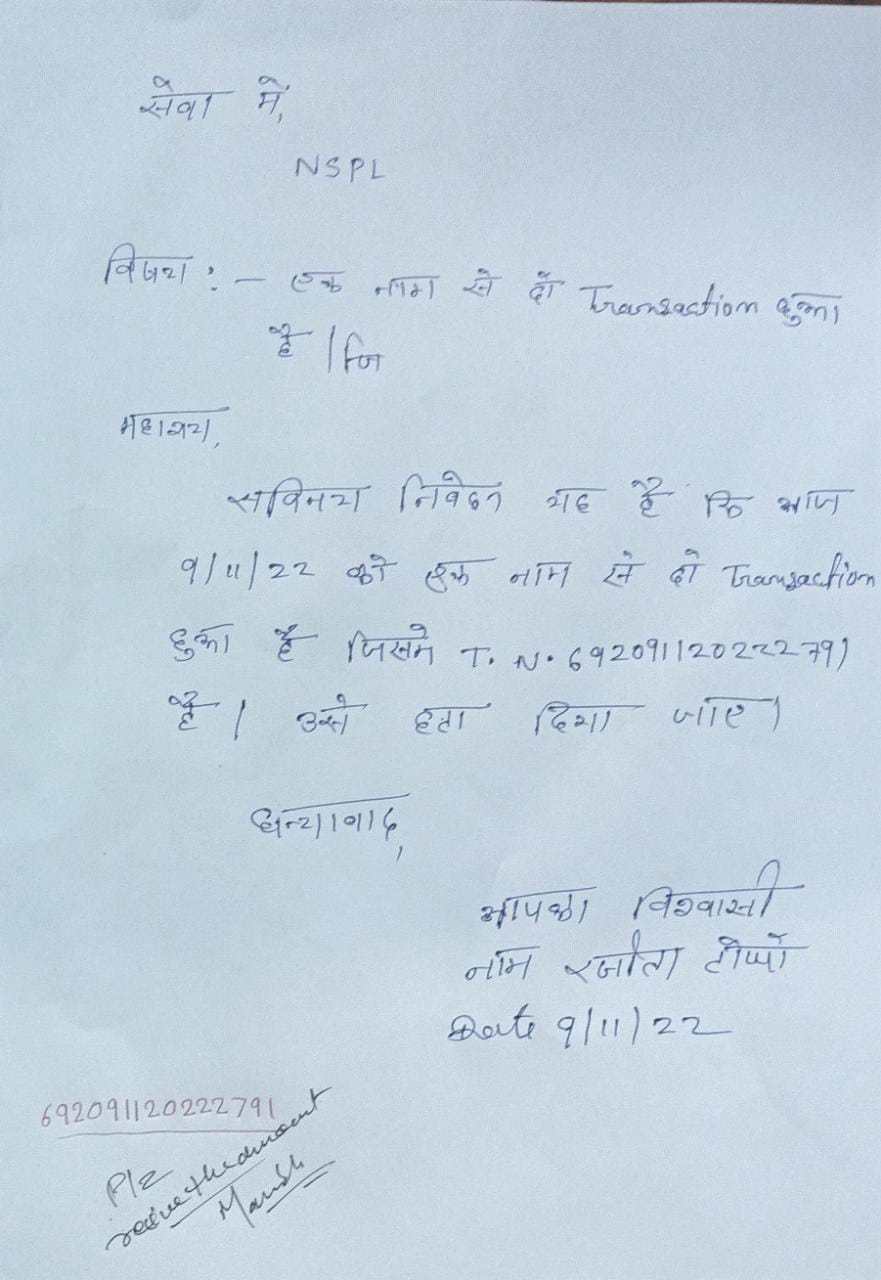 सेवा में,
NSPL
विषय :- एक नाम से दो Transaction हुआ
है । जि
महाशय,
सविनय निवेदन यह है कि आज
9/11/22 को एक नाम से दो Transaction
हुआ है जिसमे T. N. 692091120222791
है । उसे हटा दिया जाए।
धन्यावाद,
आपका विश्वासी
नाम रंजीता टोप्पो
Date 9/11/22
692091120222791
Plz
the amount
Manish